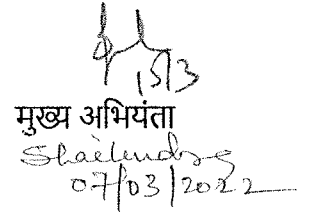 15/3
मुख्य अभियंता
Shailendra
07/03/2022